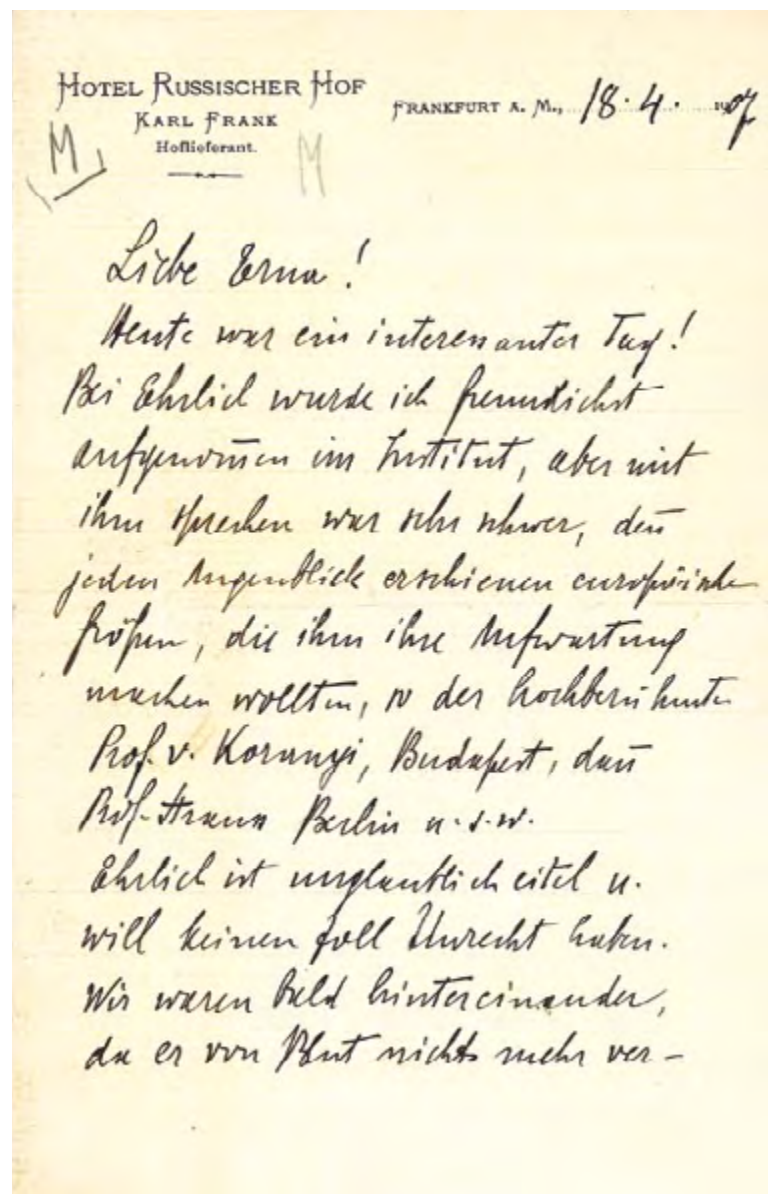 HOTEL RUSSISCHER HOF
KARL FRANK
Hoflieferant.
FRANKFURT A. M., 18. 4. 1907
M M
Liebe Erna!
Heute war ein interessanter Tag!
Bei Ehrlich wurde ich freundlichst
aufgenom̅en im Institut, aber mit
ihm sprechen war sehr schwer, den̅
jeden Augenblick erschienen europäische
Größen, die ihm ihre Aufwartung
machen wollten, so der hochberühmte
Prof. v. Koranyi, Budapest, dan̅
Prof. Strauss Berlin u. s. w.
Ehrlich ist unglaublich eitel u.
will keinen Zoll Unrecht haben.
Wir waren bald hintereinander,
da er von Blut nichts mehr ver-